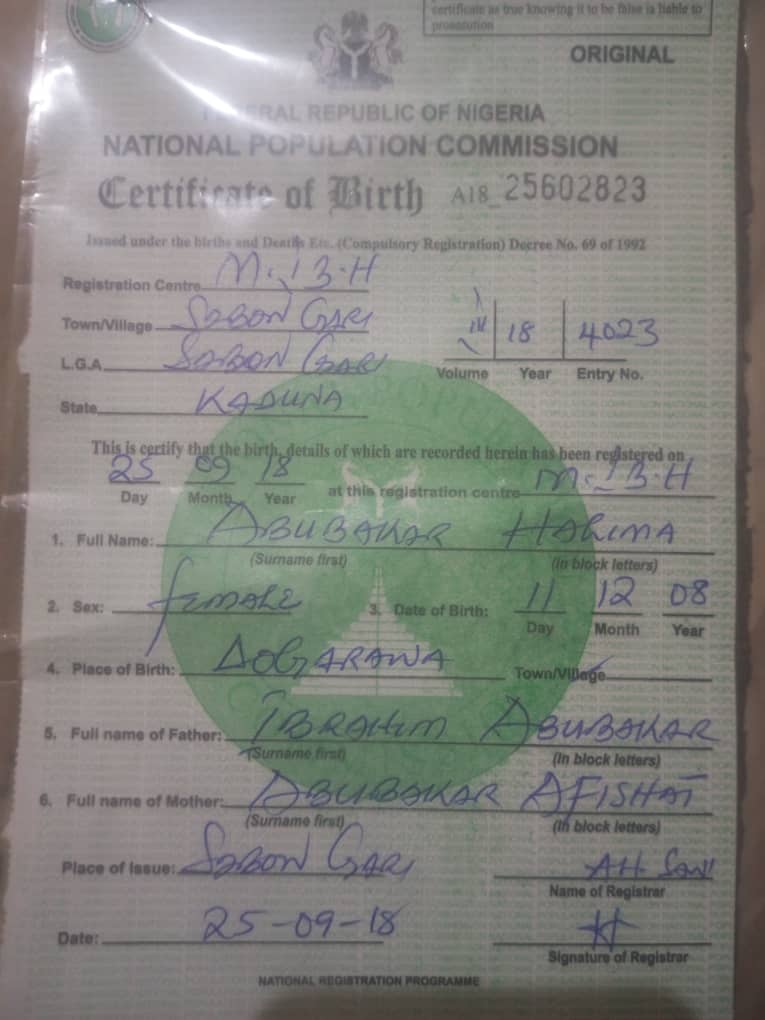 certificate as true knowing it to be false is liable to
prosecution
ORIGINAL
FEDERAL REPUBLIC OF NIGERIA
NATIONAL POPULATION COMMISSION
Certificate of Birth A18_25602823
Issued under the births and Deaths Etc. (Compulsory Registration) Decree No. 69 of 1992
Registration Centre M.I.B.H
Town/Village SABON GARI
L.G.A. SABON GARI
IV 18 4023
Volume Year Entry No.
State KADUNA
This is certify that the birth, details of which are recorded herein has been registered on
25 09 18 at this registration centre M.I.B.H
Day Month Year
1. Full Name: ABUBAKAR HALIMA
(Surname first) (In block letters)
2. Sex: FEMALE 3. Date of Birth: 11 12 08
Day Month Year
4. Place of Birth: DOGARAWA Town/Village
5. Full name of Father: IBRAHIM ABUBAKAR
(Surname first) (In block letters)
6. Full name of Mother: ABUBAKAR AFISHAT
(Surname first) (In block letters)
Place of Issue: SABON GARI AH SANI
Name of Registrar
Date: 25-09-18
Signature of Registrar
NATIONAL REGISTRATION PROGRAMME